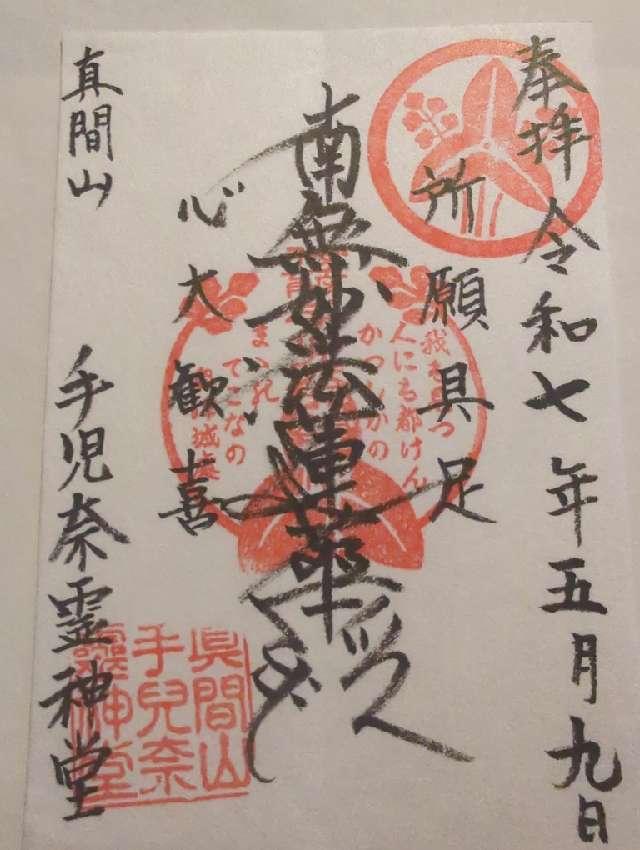 奉拝 令和七年五月九日
所願具足
南無妙法蓮華経
心大歓喜
真間山 手児奈霊神堂
人にも都げん
かつしかの
てこなの
眞間山
手兒奈
靈神堂